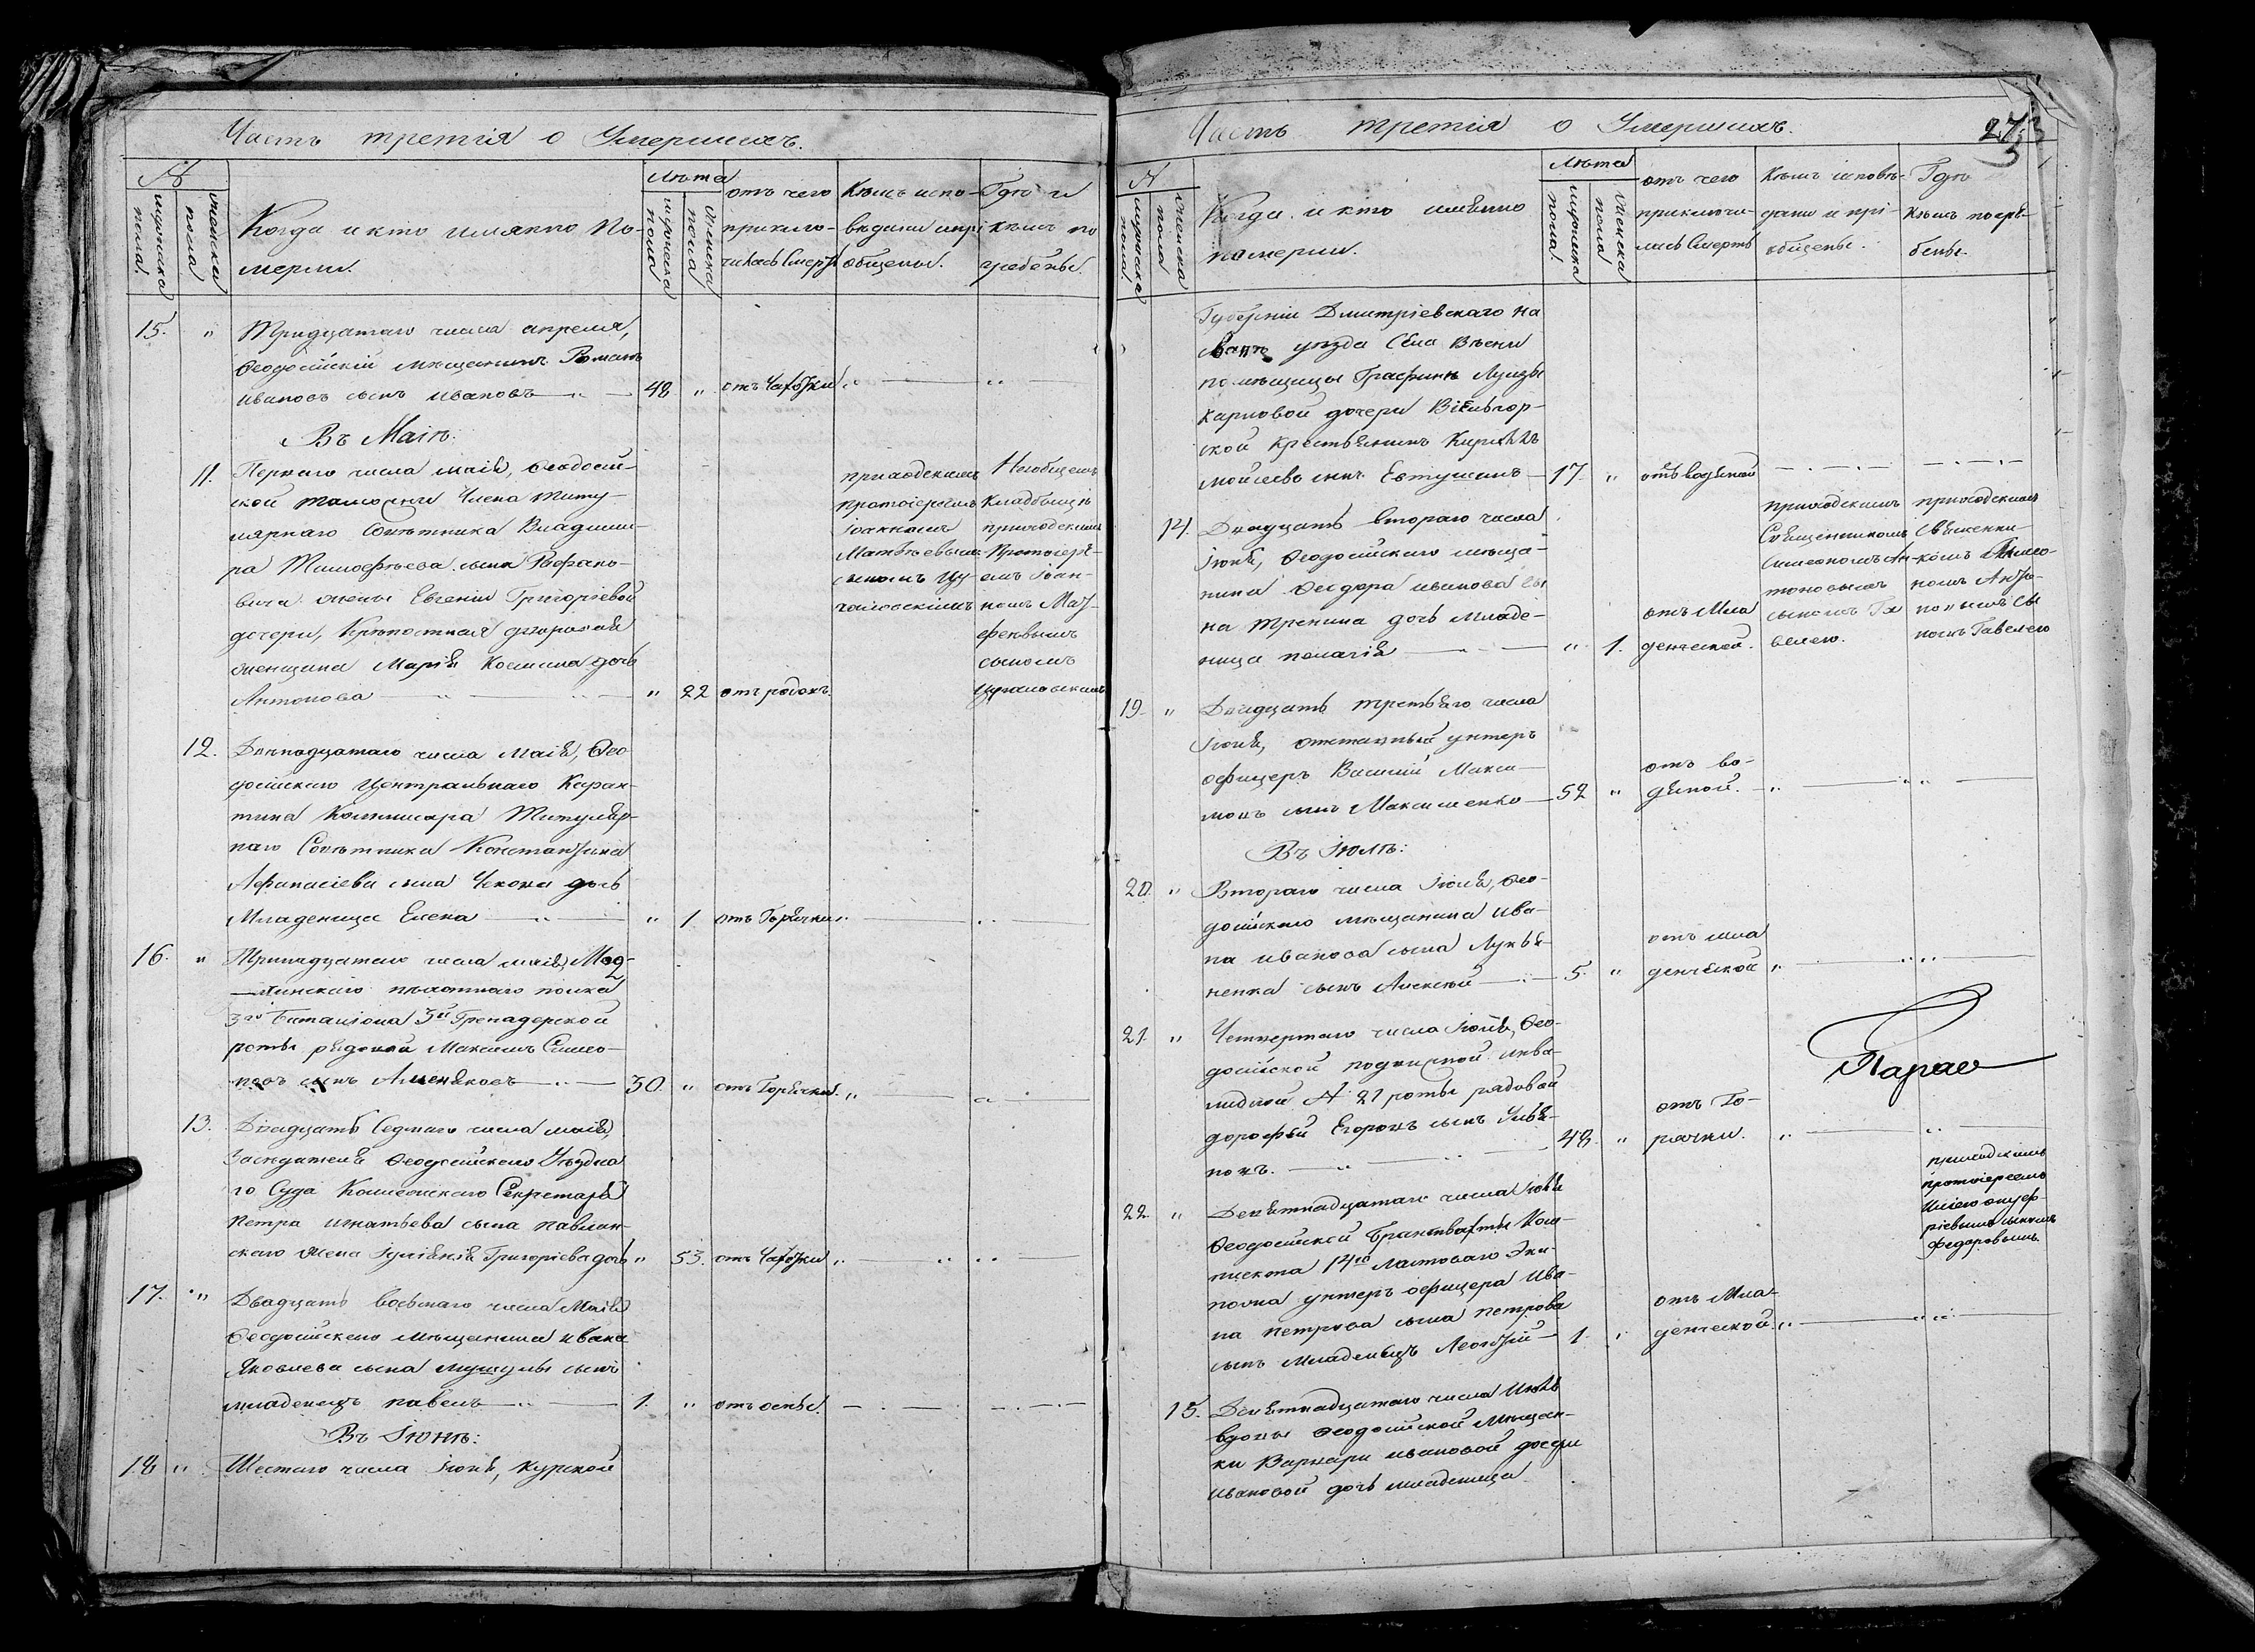 Часть третія о Умершихъ.
№
мужеска пола.
женска пола
Когда и кто имянно по-
мерли.
Лѣта
мужеска пола
женска пола
отъ чего
приклю-
чилась смерть
Кѣмъ испо-
вѣданы и прі
общены.
Гдѣ и
кѣмъ по
гребены.
15. " Тридцатаго числа апреля,
Ѳеодосійскій мѣщанинъ Романъ
Ивановъ сынъ Ивановъ 48 " отъ Чахотки
Въ Маіѣ:
11. Перваго числа маія, Ѳеодосій-
ской таможни Члена титу-
лярнаго Совѣтника Владими-
ра Тимофѣева сына
вича жены Евгеніи Григорієвой
дочери, Крѣпостная дворовая
женщина Марія Космина дочь
Антонова " 22 отъ родовъ.
приходскимъ
протоіереемъ
Іоанномъ
Матѳѣевымъ
сыномъ Цу-
На общемъ
Кладбищѣ
приходскимъ
Протоіере-
емъ Іоан-
номъ Мат-
феевымъ
сыномъ
12. Двенадцатаго числа Маія, Ѳео-
досійскаго Центральнаго Каран-
тина Коммисара Титуляр-
наго Совѣтника Константина
Афанасіева сына Чекона дочь
Младеница Елена " 1 отъ Горячки
16. " Тринадцатаго числа маія, Мод-
линскаго пѣхотнаго полка
3го Баталіона 3й Гренадерской
роты рядовой Максимъ Симо-
новъ сынъ 30. " отъ Горячки.
13. Двадцать Седмаго числа маія,
Засѣдателя Ѳеодосійскаго Уѣздна
го Суда Коллежскаго Секретаря
Петра Игнатьева сына Павлов-
скаго жена Іуліанія Григорієва дочь " 53. отъ Чахотки
17. " Двадцать восьмаго числа Маія
Ѳеодосійскаго Мѣщанина Ивана
Яковлева сына сынъ
младенецъ Павелъ 1. " отъ оспы.
Въ Іюнѣ:
18 " Шестаго числа Іюня, Курской
Часть третія о Умершихъ.
273
№
мужеска пола.
женска пола
Когда и кто имѣнно
померли.
Лѣта
мужеска пола
женска пола
отъ чего
приключи-
лась Смерть
Кѣмъ исповѣ-
даны и прі-
общены.
Гдѣ
кѣмъ погре-
бены.
Губерніи Дмитріевскаго на
Свапѣ уѣзда Села
помѣщицы Графини Луизы
Карловой дочери Віельгор-
ской крестьянинъ Кирилъ
Мойсеевъ сынъ Евтушинъ 17. " отъ водяной
14. Двадцать втораго числа
Іюня, Ѳеодосійскаго мѣща-
нина Ѳеодора Иванова сы
на Тренина дочь младе-
ница Пелагія " 1. отъ мла
денческой.
приходскимъ
Священникомъ
Симеономъ Ан-
тоновымъ
сыномъ Га
велею.
приходскимъ
Священни-
комъ Симео-
номъ Анто-
новымъ Сы
номъ Гавелею
19. " Двадцать третьяго числа
Іюня, отставный унтеръ
офицеръ Василій Макси-
мовъ сынъ Максименко 52 " отъ во-
дяной.
Въ Іюлѣ:
20. " Втораго числа Іюля, Ѳео-
досійскаго мѣщанина Ива-
на Иванова сына Лукья-
ненка сынъ Алексѣй 5. " отъ мла
денческой
21. " Четвертаго числа Іюля, Ѳео-
досійской подвижной инва-
лидной № 21 роты рядовой
Дорофѣй Егоровъ сынъ Улья-
новъ. 48. " отъ Го-
рячки.
22. " Девятнадцатаго числа Іюля
Ѳеодосійской Брантвахты Ком-
14го Ластоваго Эки-
пажа унтеръ офицера Ива-
на Петрова сына Петрова
сынъ младенецъ Леонтій 1. " отъ Мла-
денческой.
приходскимъ
протоіереемъ
Иліею онуф-
ріевымъ сыномъ
Федоровымъ.
15. Девятнадцатаго числа Июля
вдовы Ѳеодосійской Мѣщан-
ки Варвары Ивановой дочери
Ивановой дочь младеница